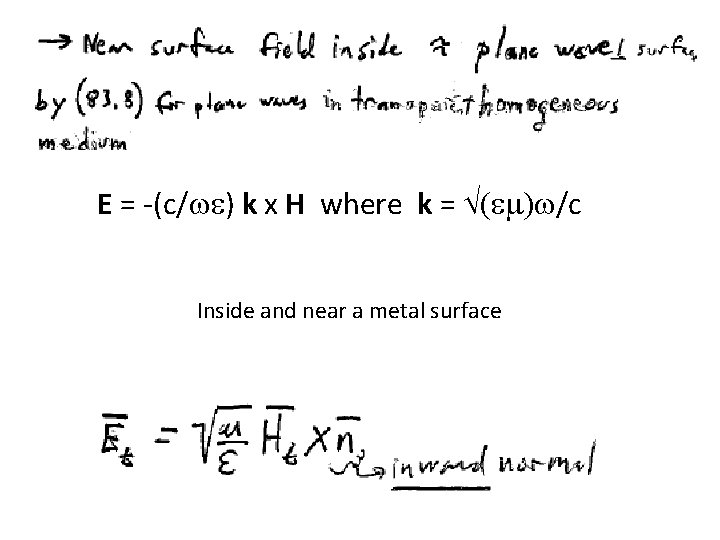 → Near surface field inside ≈ plane wave ⊥ surface
by (83.8) for plane waves in transparent homogeneous
medium
E = -(c/ωε) k x H where k = √(εμ)ω/c
Inside and near a metal surface
E̅t = √(μ/ε) H̅t × n̅, → inward normal